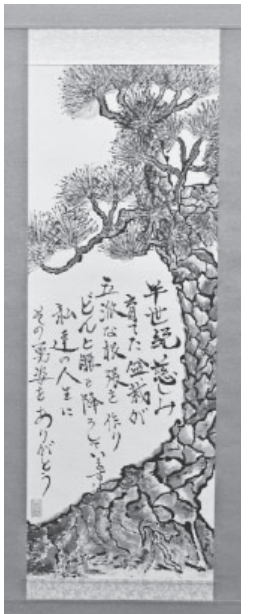 半世紀慈しみ
育てた盆栽が
立派な根張を作り
どんと腰を降ろしています
私達の人生に
その勇姿をありがとう